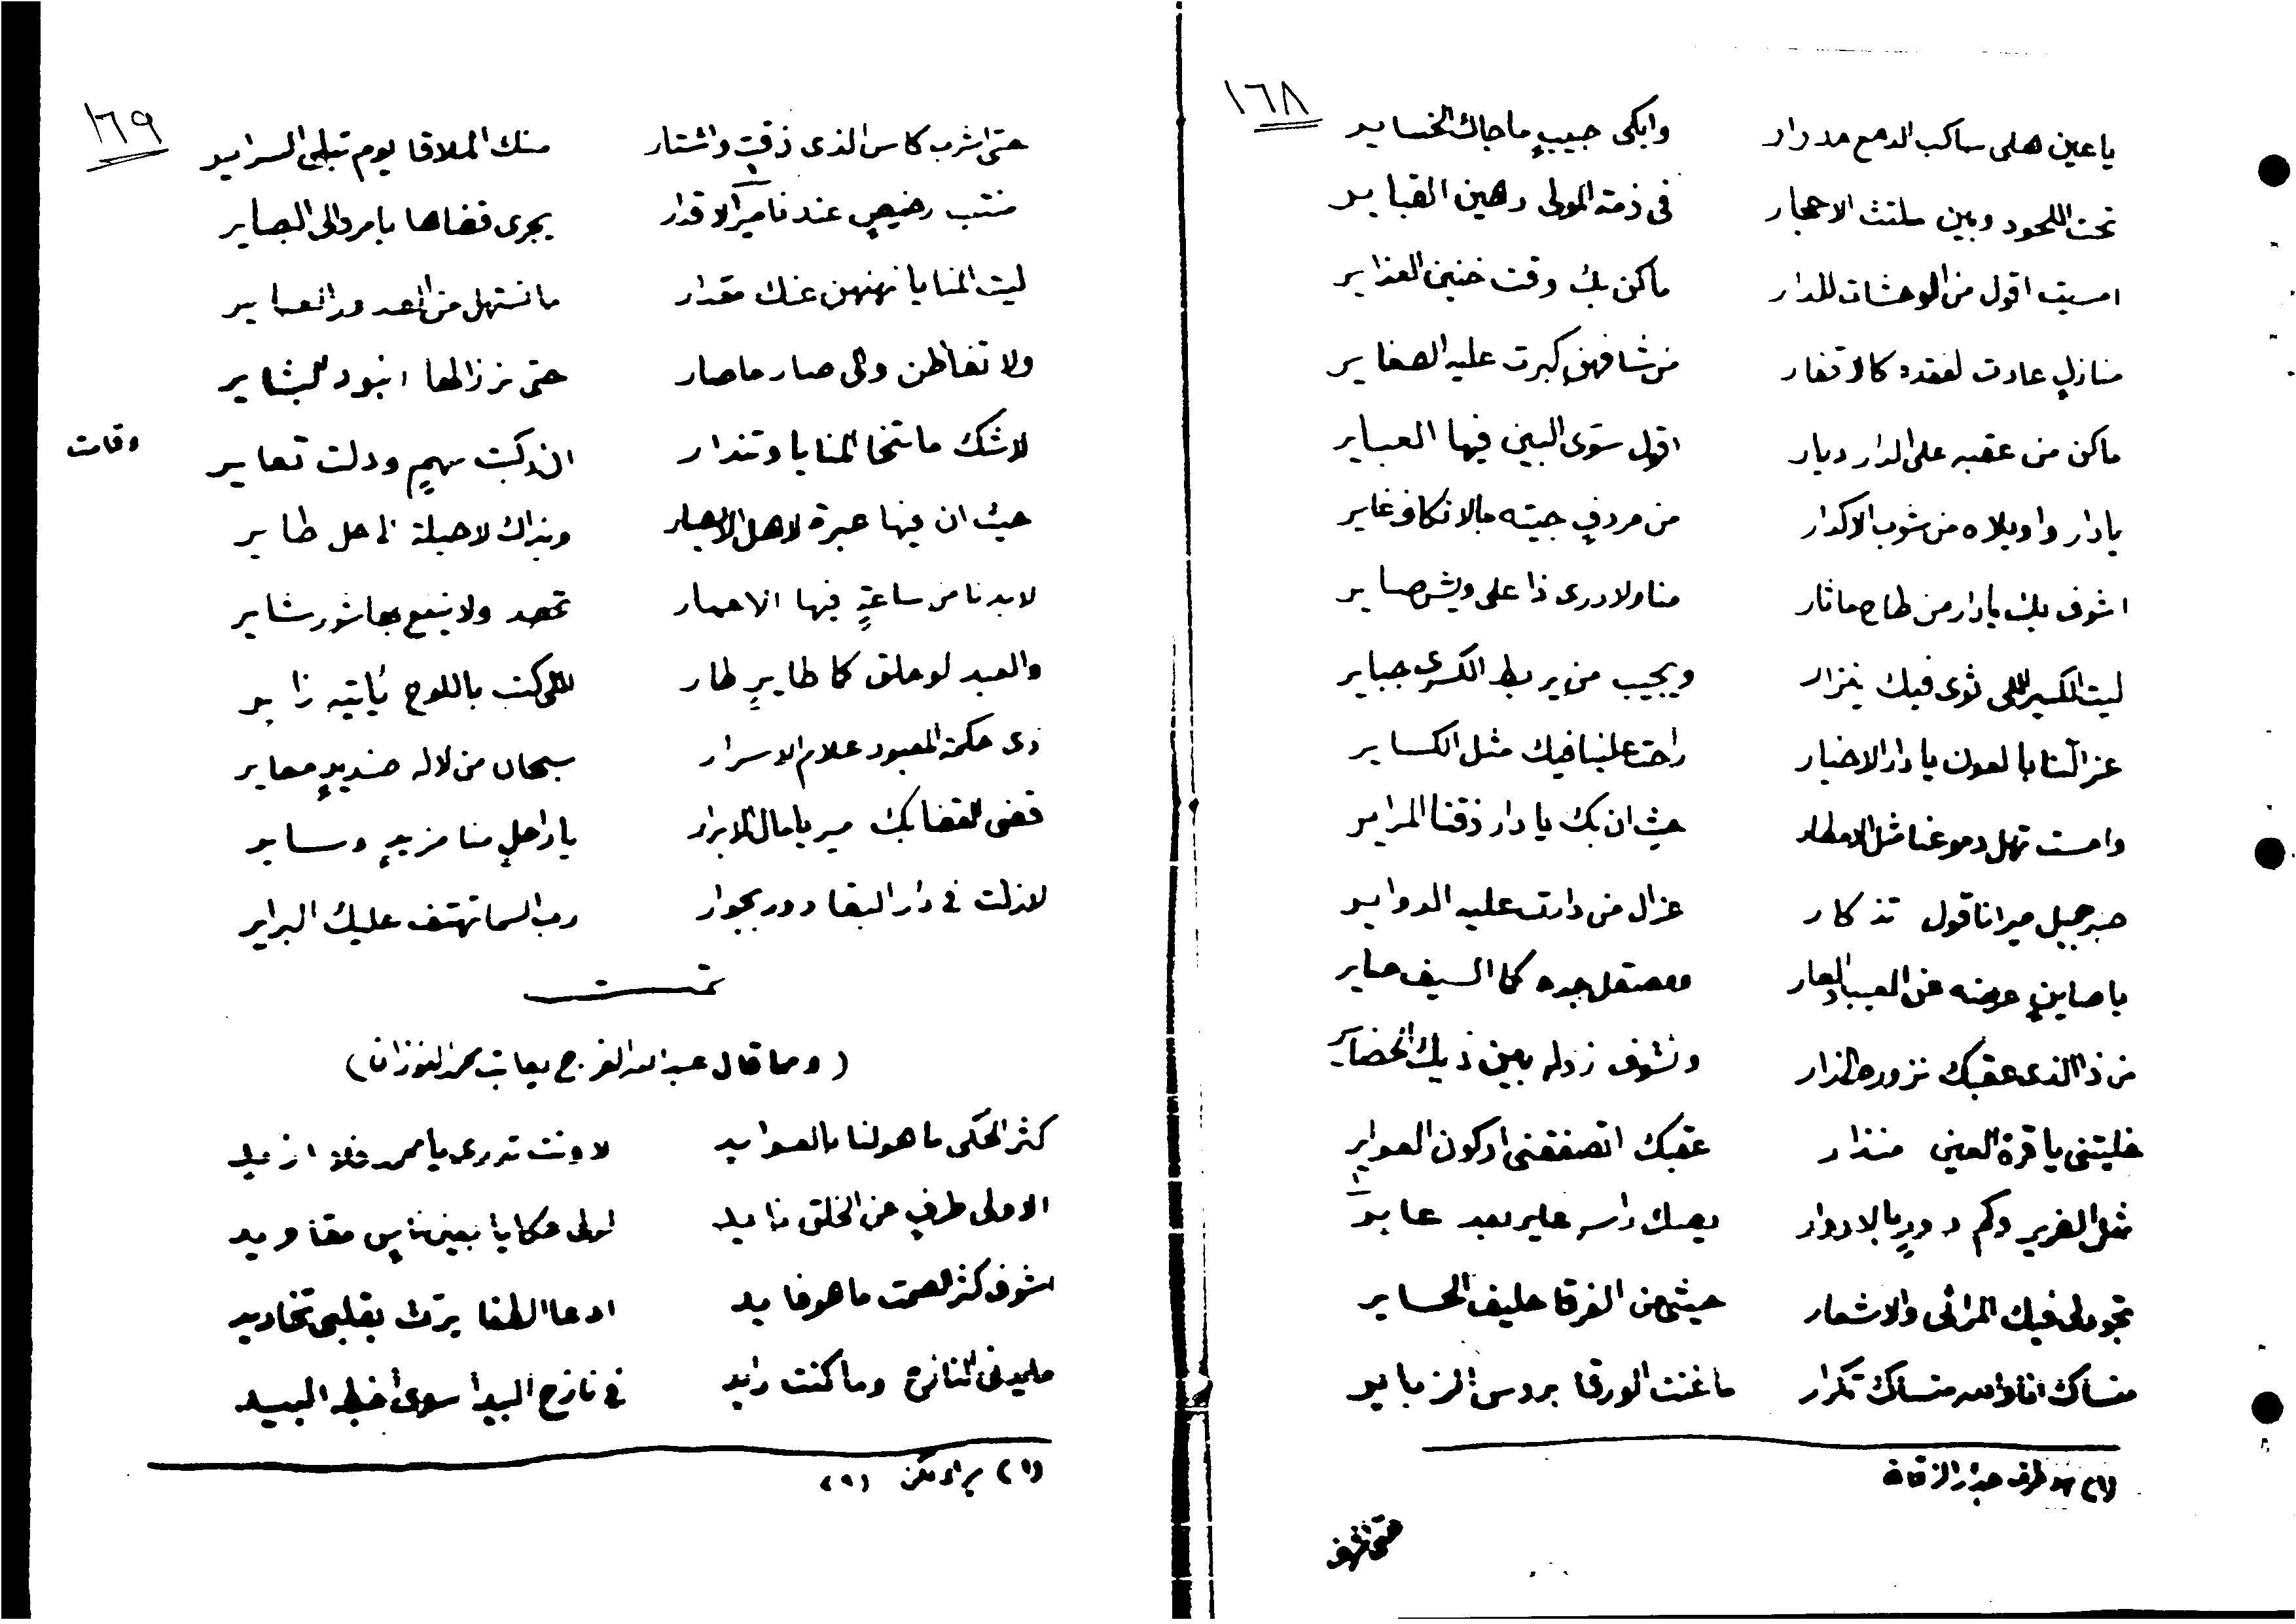 ١٦٨
يا عين هلي ساكب الدمع مدرار وابكي حبيبٍ ما جاك الخساير
تحت اللحود وبين ملتث الاحجار في ذمة المولى رهين القباير
امسيت اقول من الوحشات للدار ماكن بك وقت خنين العذاير
منازلٍ عادت لفقده كالاقفار من شافهن كبرت عليه الصغاير
ماكن من عقبه على الدار ديار اقول سوى البين فيها العباير
يا دار واويلاه من شوب الاكدار من مردفٍ جيته مالا نكافو غاير
اشوف بك يا دار من طاح ما ثار منا ولا درى ذا على ويش صاير
ليت الكسير اللي ثوى فيك ينزار ويجيب من يربط الكسرى جباير
عزالنا بالعون يا دار الاخيار راحت علينا فيك مثل الكساير
وامست تهل دموعنا مثل الامطار حيث ان بك يا دار ذقنا المراير
صبر جميل مير انا قول تذكار عزال من دارت عليه الدواير
يا صاينٍ عرضه عن العيب والعار ومصتقل جده كما السيف صاير
من ذا الذي عقبك نزوره الى زار ونشوف زوله بعين ذيك الخضاير
خليتني يا قرة العين منذار عقبك اتصفقني اركون العواير
مثل الغرير وكم دورٍ بالادوار يصك راسه عاير بعد عاير
تجو ملي فيك المراثي والاشعار حيثي من الفرقا حليف الحساير
منساك انا والله منساك تكرار ما غنت الورقا بروس الزباير
(١) طرف جدار الزقاق
١٦٩
حتى اشرب كاس الذي ذقت واشتار منك الملاقا يوم تبلى السراير
منتب رخيصٍ عندنا مير الاقدار يجري قضاها بامر والي البصاير
ليت المنايا نهنهن عنك مقدار ما نستهل من الصدور العساير
ولا تغاظن والى صار ما صار حتى نرزالها انبود البشاير
لا شك ما تنخا المنايا وتندار ان ركبت سهمٍ ودلت تعاير
وقامت
حيث ان فيها عبرة لاهل الابصار وبذاك لا حيلة الى حل طاير
لا بدنا من ساعةٍ فيها الاعمار تحصد ولا ينفع بها شور شاير
والعبد لو حلق كما طايرٍ طار اللي كتب باللوح ياتيه زاير
ذي حكمة المعبود علام الاسرار سبحان من لا له ضديدٍ معاير
قضى القضا بك مير يا مال الابرار يا راحلٍ منا مزيدٍ وساير
لازلت في دار البقا ودر بجوار رب السما تهتف عليك البراير
تمت
(ومما قال عبدالله الفرج يعاتب محمد الفوزان)
كثر الحكي ما هو لنا بالعوايد لا ونت تدري يا محمد فلا ازيد
الا ولي طرفٍ عن الخلق ذايد لولي حكايا بعين ناسٍ مقاويد
اشوف كثر الصمت ما هو فايد ادعا الطفا يترك بقلبي تخاديد
ملیت المنازح وما كنت رايد في نازح البيدا سوى اخبط البيد
(١)